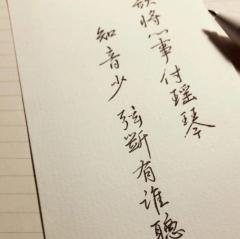 欲將心事付瑤琴
知音少 弦斷有誰聽